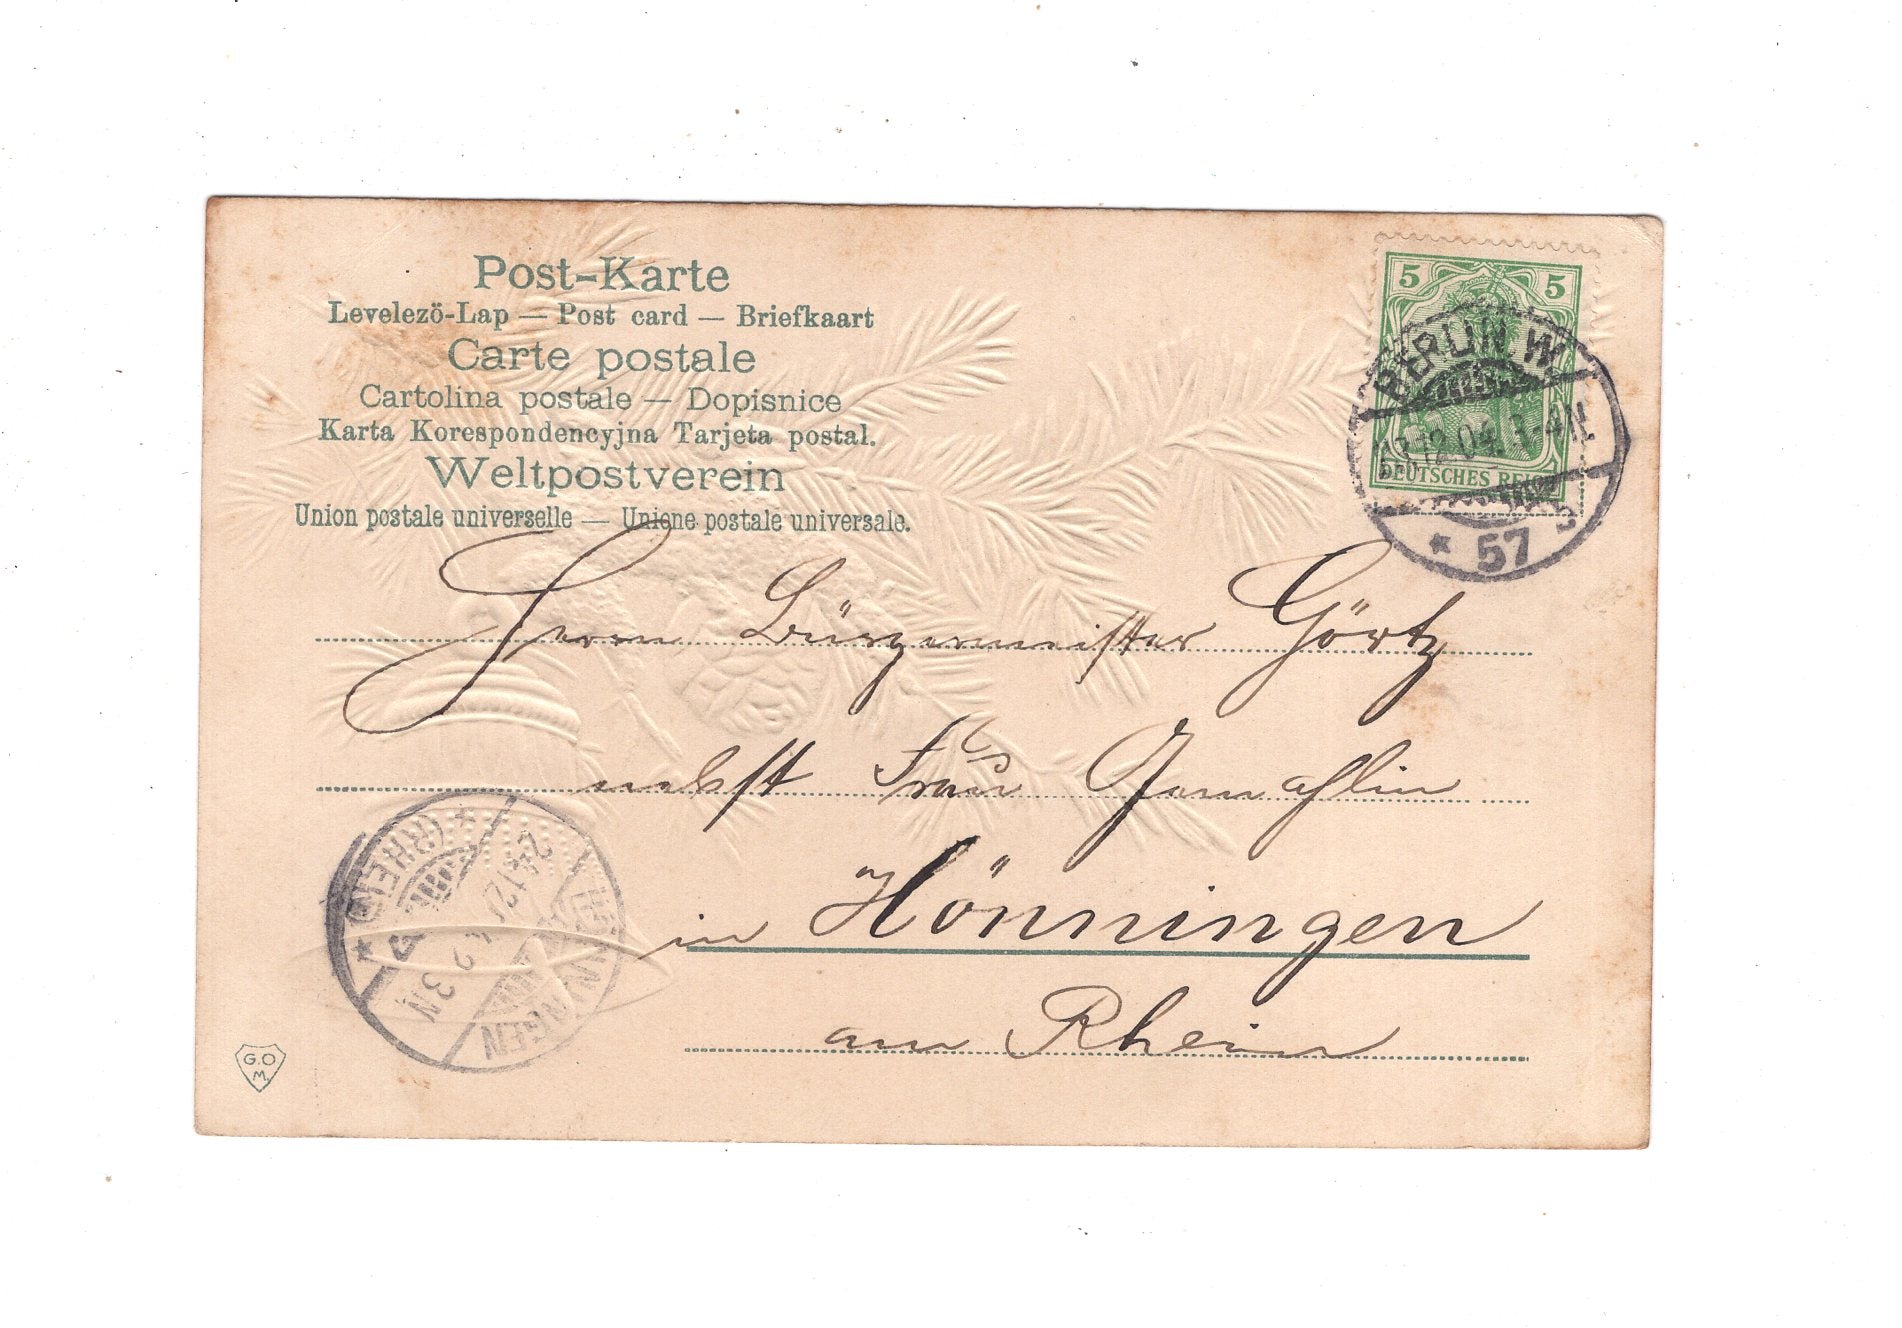 Post-Karte
Levelezö-Lap — Post card — Briefkaart
Carte postale
Cartolina postale — Dopisnice
Karta Korespondencyjna Tarjeta postal.
Weltpostverein
Union postale universelle — Unione postale universale.
5 5
DEUTSCHES REICH
BERLIN W.
12.04. 3-4N.
* 57
Herrn Bürgermeister Görtz
nebst Frau Gemahlin
in Hönningen
am Rhein
HÖNNINGEN
24.12. 2-3N
* (RHEIN) *
G.O.
M.